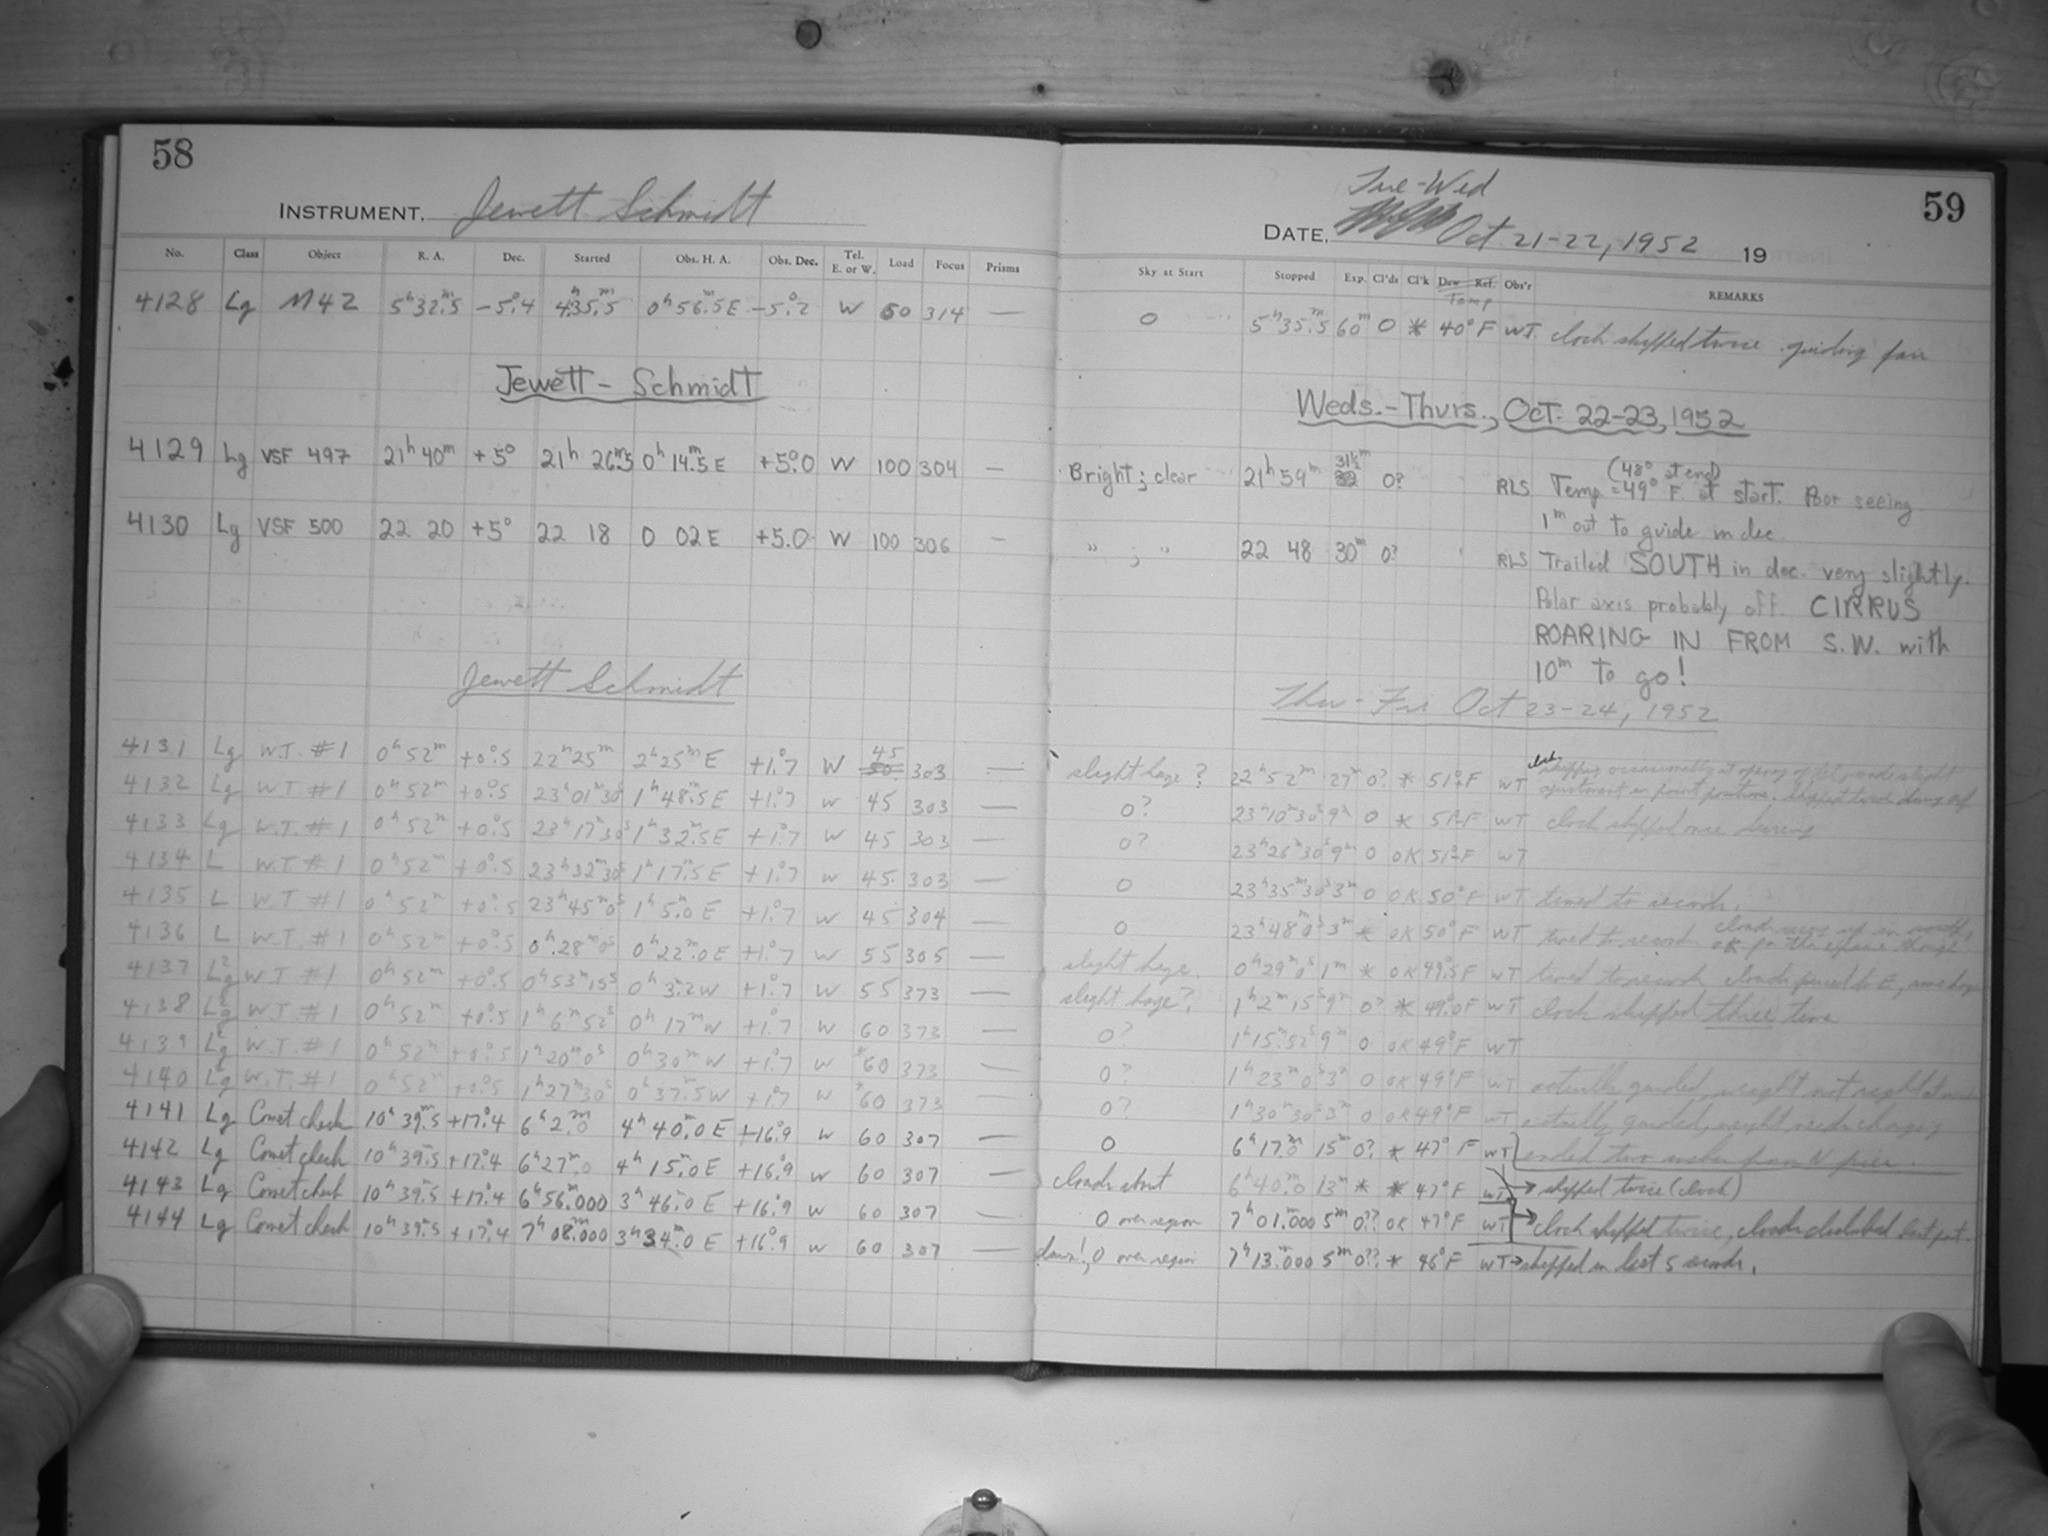 58
INSTRUMENT. Jewett Schmidt
No. Class Object R. A. Dec. Started Obs. H. A. Obs. Dec. Tel. E. or W. Load Focus Prisms
4128 Lg M42 5h32m.5 -5°.4 4h35m.5 0h56m.5E -5°.2 W 60 314 —
Jewett-Schmidt
4129 Lg VSF 497 21h40m +5° 21h26m.5 0h14m.5E +5°.0 W 100 304 —
4130 Lg VSF 500 22 20 +5° 22 18 0 02E +5.0 W 100 306 —
Jewett Schmidt
4131 Lg W.T. #1 0h52m +0°.5 22h25m 2h25mE +1°.7 W 45 303 —
4132 Lg W.T. #1 0h52m +0°.5 23h01m30s 1h48m.5E +1°.7 W 45 303 —
4133 Lg W.T. #1 0h52m +0°.5 23h17m30s 1h32m.5E +1°.7 W 45 303 —
4134 L W.T. #1 0h52m +0°.5 23h32m30s 1h17m.5E +1°.7 W 45 303 —
4135 L W.T. #1 0h52m +0°.5 23h45m0s 1h5m.0E +1°.7 W 45 304 —
4136 L W.T. #1 0h52m +0°.5 0h28m0s 0h22m.0E +1°.7 W 55 305 —
4137 W.T. #1 0h52m +0°.5 0h53m15s 0h3m.2W +1°.7 W 55 373 —
4138 W.T. #1 0h52m +0°.5 1h6m52s 0h17mW +1°.7 W 60 373 —
4139 W.T. #1 0h52m +0°.5 1h20m0s 0h30mW +1°.7 W *60 373 —
4140 W.T. #1 0h52m +0°.5 1h27m30s 0h37m.5W +1°.7 W *60 373 —
4141 Lg Comet check 10h39m.5 +17°.4 6h2m.0 4h40m.0E +16°.9 W 60 307 —
4142 Lg Comet check 10h39m.5 +17°.4 6h27m.0 4h15m.0E +16°.9 W 60 307 —
4143 Lg Comet check 10h39m.5 +17°.4 6h56m.000 3h46m.0E +16°.9 W 60 307 —
4144 Lg Comet check 10h39m.5 +17°.4 7h08m.000 3h34m.0E +16°.9 W 60 307 —
59
Tue-Wed
DATE. Oct 21-22, 1952 19
Sky at Start Stopped Exp. Cl'ds Cl'k Dew Ref. Obs'r REMARKS
Temp
0 5h35m.5 60m 0 * 40°F WT. clock skipped twice. guiding fair
Weds.-Thurs., Oct. 22-23, 1952
Bright; clear 21h59m 31½m 0? RLS Temp = 49° F. at start. Poor seeing
(48° at end)
1m out to guide in dec.
" ; " 22 48 30m 0? RLS Trailed SOUTH in dec. very slightly.
Polar axis probably off. CIRRUS
ROARING IN FROM S.W. with
10m to go!
Thu-Fri Oct 23-24, 1952
slight haze? 22h52m 27m 0? * 51°F WT clock skipping occasionally at
0? 23h10m30s 9m 0 * 51°F WT clock skipped once during
0? 23h26m30s 9m 0 OK 51°F WT
0 23h35m30s 3m 0 OK 50°F WT timed to seconds.
0 23h48m0s 3m * OK 50°F WT timed to seconds clouds up in north,
slight haze 0h29m0s 1m * OK 49°.5F WT timed to seconds clouds to E,
slight haze? 1h2m15s 9m 0? * 49°.0F WT clock skipped three times
0? 1h15m52s 9m 0 OK 49°F WT
0? 1h23m0s 3m 0 OK 49°F WT actually guided, weight not right
0? 1h30m30s 3m 0 OK 49°F WT actually guided, weight
0 6h17m.0 15m 0? * 47°F WT ended two inches from N pier.
Clouds about 6h40m.0 13m * * 47°F WT → skipped twice (clock)
0 over region 7h01m.000 5m 0?? OK 47°F WT → clock skipped twice, clouds disturbed last part.
dawn!, 0 over region 7h13m.000 5m 0?? * 46°F WT → skipped in last 5 seconds.